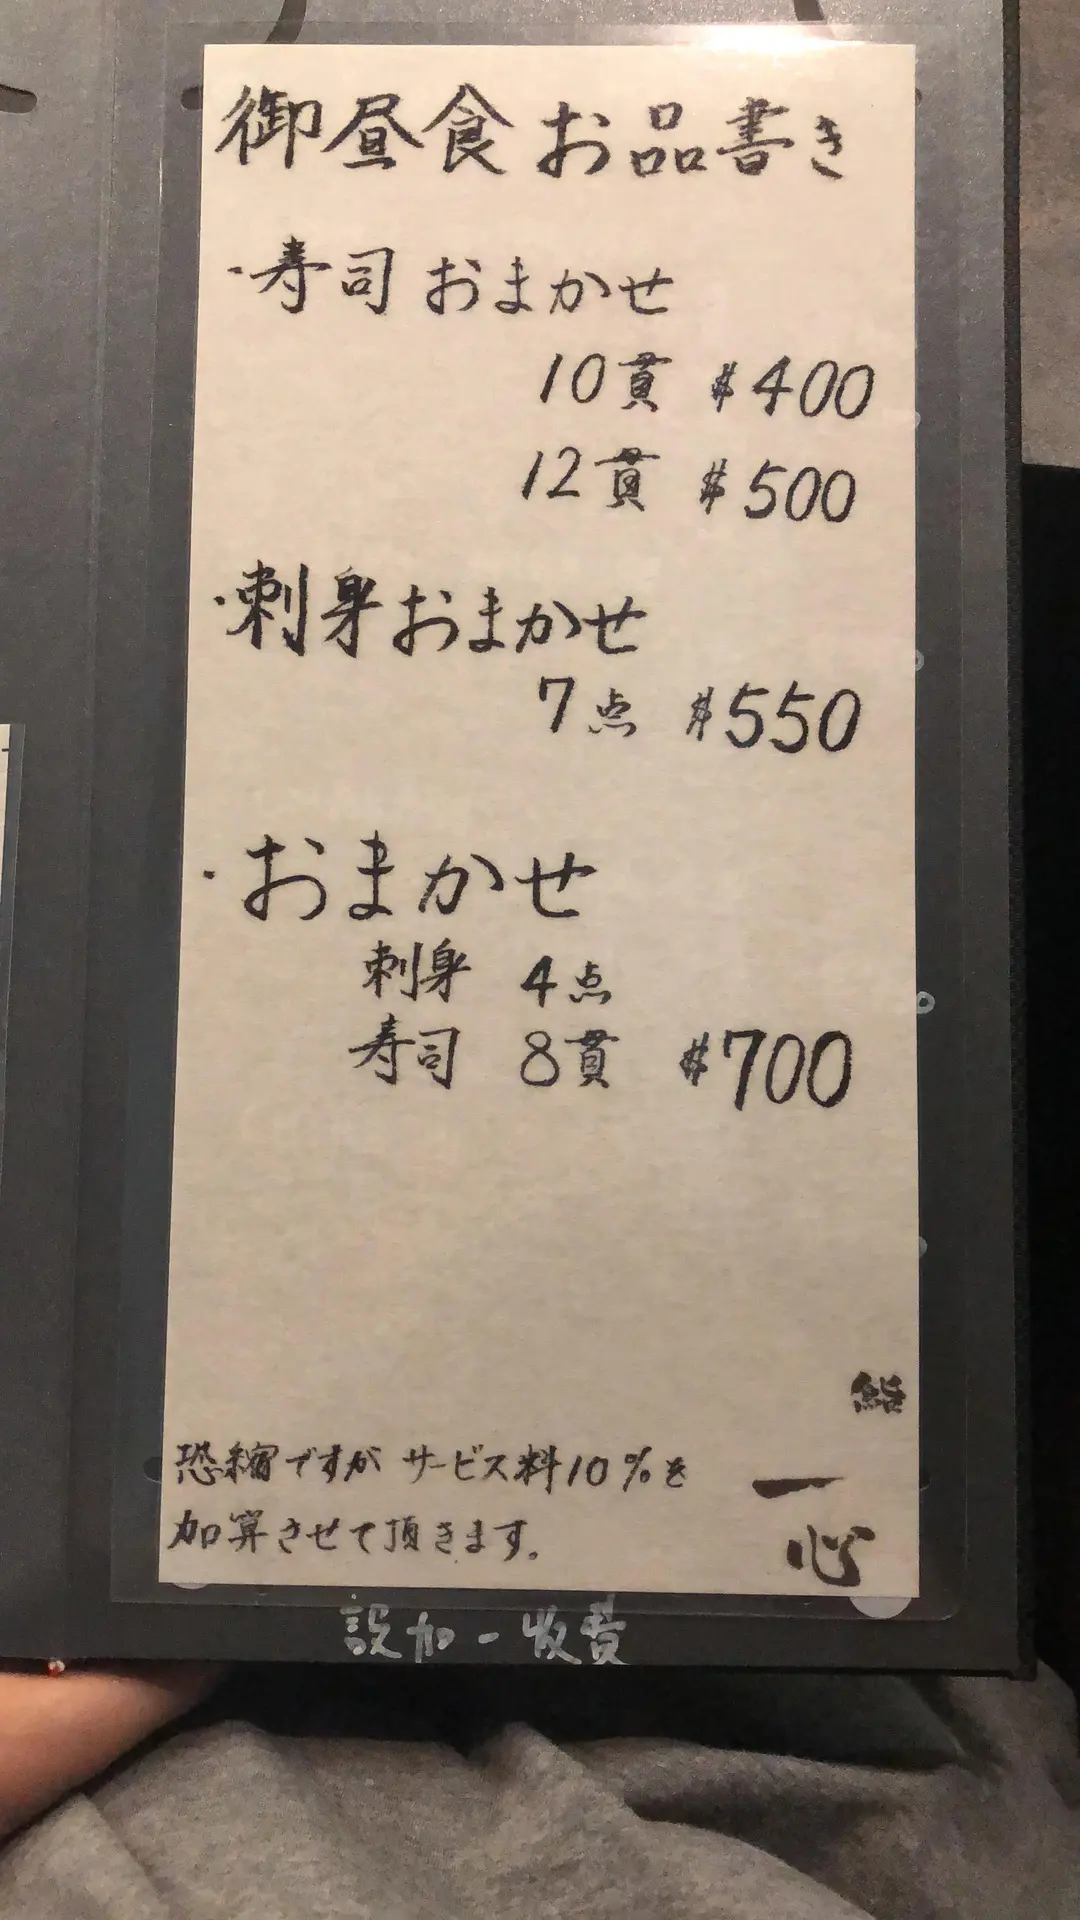 御昼食お品書き
・寿司おまかせ
10貫 $400
12貫 $500
・刺身おまかせ
7点 $550
・おまかせ
刺身 4点
寿司 8貫 $700
恐縮ですが サービス料10%を
加算させて頂きます。
鮨
一
心
設加一收費